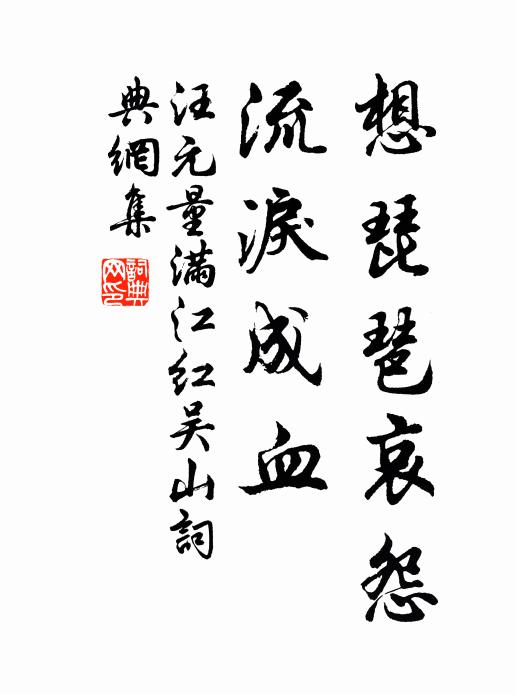 想琵琶哀怨
流淚成血
汪元量满江红吴山詞
典網集
詞典
网印